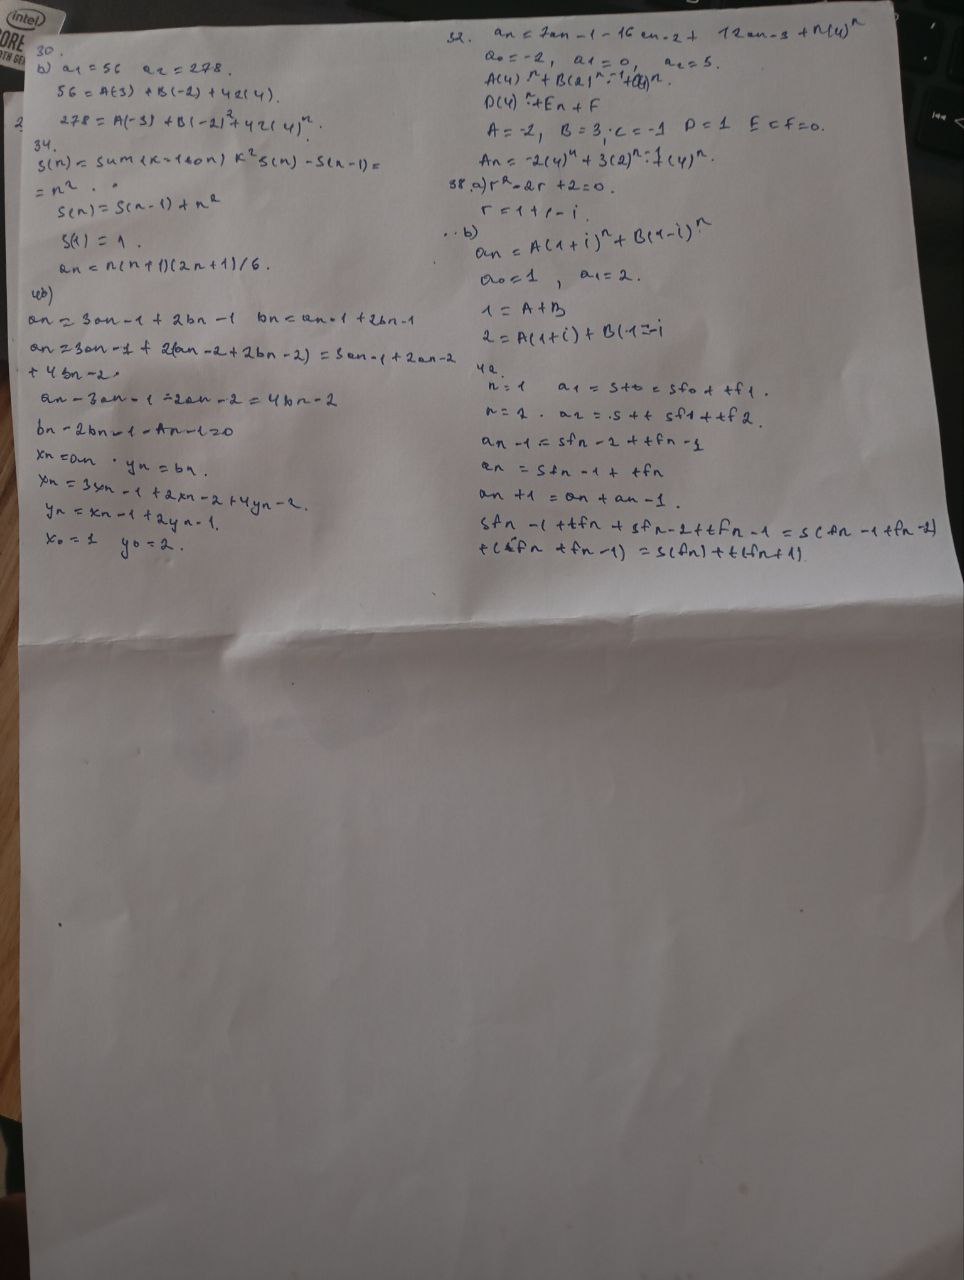 intel
CORE
30.
b) a1 = 56 a2 = 278.
56 = A(-3) + B(-2) + 42(4).
278 = A(-3) + B(-2)² + 42(4)ⁿ.
34.
S(n) = sum (k=1 to n) k² S(n) - S(n-1) =
= n²
S(n) = S(n-1) + n²
S(1) = 1.
an = n(n+1)(2n+1)/6.
4b)
an = 3an-1 + 2bn-1 bn = an-1 + 2bn-1
an = 3an-1 + 2(an-2 + 2bn-2) = 3an-1 + 2an-2
+ 4bn-2.
an - 3an-1 - 2an-2 = 4bn-2
bn - 2bn-1 - An-1 = 0
xn = an . yn = bn.
xn = 3xn-1 + 2xn-2 + 4yn-2.
yn = xn-1 + 2yn-1.
x0 = 1 y0 = 2.
32. an = 7an-1 - 16an-2 + 12an-3 + n(4)ⁿ
a0 = -2, a1 = 0, a2 = 5.
A(4)ⁿ + B(2)ⁿ
D(4)ⁿ + En + F
A = -2, B = 3, C = -1 D = 1 E = F = 0.
An = -2(4)ⁿ + 3(2)ⁿ (4)ⁿ.
38. a) r² - 2r + 2 = 0.
r = 1 + i - i.
b)
an = A(1+i)ⁿ + B(1-i)ⁿ
a0 = 1, a1 = 2.
1 = A + B
2 = A(1+i) + B(1 - i
42.
n = 1 a1 = s+t = sf0 + tf1.
n = 2. a2 = s+t sf1 + tf2.
an-1 = sfn-2 + tfn-1
an = sfn-1 + tfn
an+1 = an + an-1.
sfn-1 + tfn + sfn-2 + tfn-1 = s(fn-1 + fn-2)
+(fn + fn-1) = s(fn) + t(fn+1)